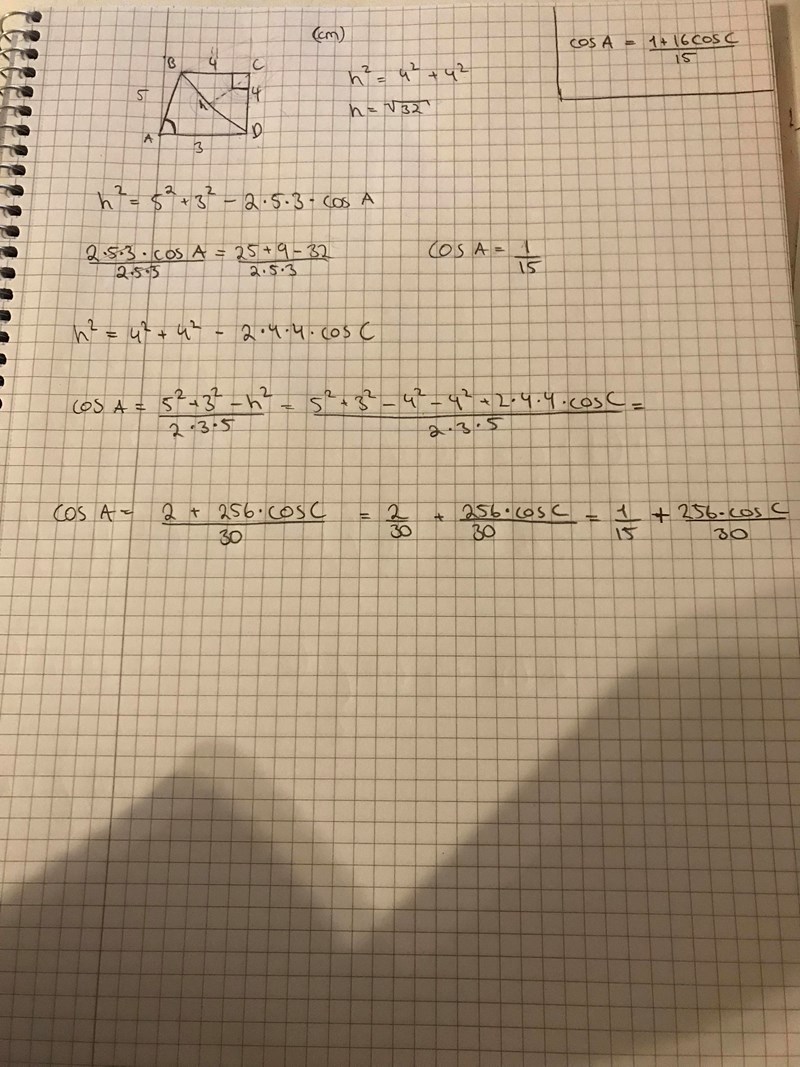 (cm)
cos A = (1+16cosC)/15
B 4 C
5 h 4
A 3 D
h² = 4² + 4²
h = √32
h² = 5² + 3² - 2·5·3 · cos A
(2·5·3 · cos A)/(2·5·5) = (25+9-32)/(2·5·3)
cos A = 1/15
h² = 4² + 4² - 2·4·4·cos C
cos A = (5²+3²-h²)/(2·3·5) = (5²+3²-4²-4²+2·4·4·cosC)/(2·3·5) =
cos A = (2 + 256·cosC)/30 = 2/30 + (256·cosC)/30 = 1/15 + (256·cosC)/30